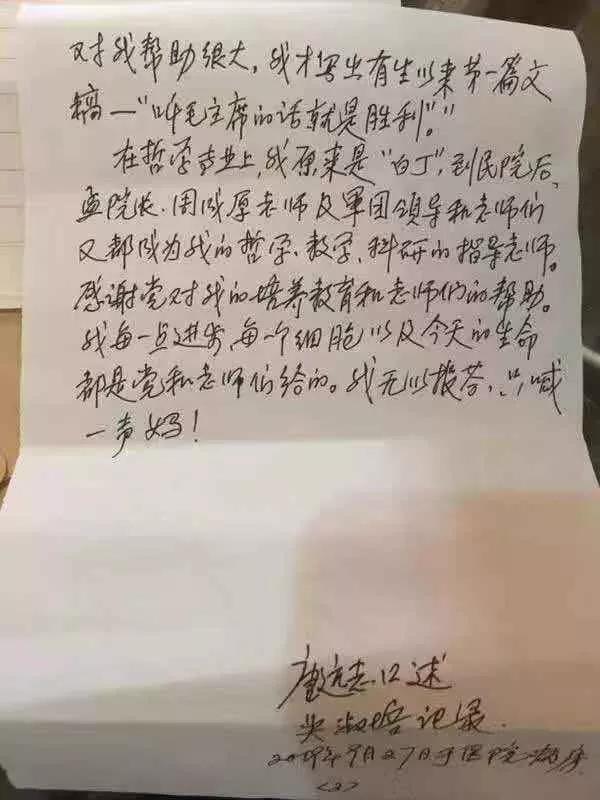 对我帮助很大，我才写出有生以来第一篇文
稿—“听毛主席的话就是胜利”。
在哲学专业上，我原来是“白丁”，到民院后，
孟院长、周成厚老师及军团领导和老师们
又都成为我的哲学、教学、科研的指导老师。
感谢党对我的培养教育和老师们的帮助。
我每一点进步，每一个细胞以及今天的生命
都是党和老师们给的。我无以报答，只喊
一声妈！
志口述
淑培记录.
年9月27日于医院病房
<2>